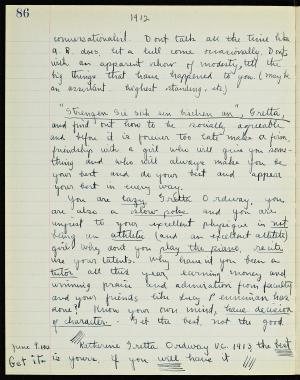 86
1912
conversationalist. Dont talk all the time like
a. B. does, let a lull come occasionally. Dont,
with an apparent show of modesty, tell the
big things that have happened to you. (may be
an assistant. highest standing. etc)
"Strengen Sie sich ein bischen an", Gretta,
and find out how to be socially agreeable
and before it is forever too late make a firm
friendship with a girl who will give you some-
thing and who will always make you be
your best and do your best and appear
your best in every way.
You are lazy Gretta Ordway, you
are also a slow poke and you are
unjust to your excellent physique in not
being an athletic (and an excellent athletic)
girl. Why dont you play the piano, recite
use your talents. Why haven't you been a
tutor all this year, earning money and
winning praise and admiration from faculty
and your friends like Lucy Penniman have
done? Know your own mind, have decision
of character. Get the best, not the good
June 9, 1912 Katharine Gretta Ordway V.C. 1913 the best
Get it is yours, if you will have it